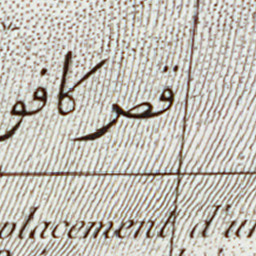 قصر كافو
placement d'un